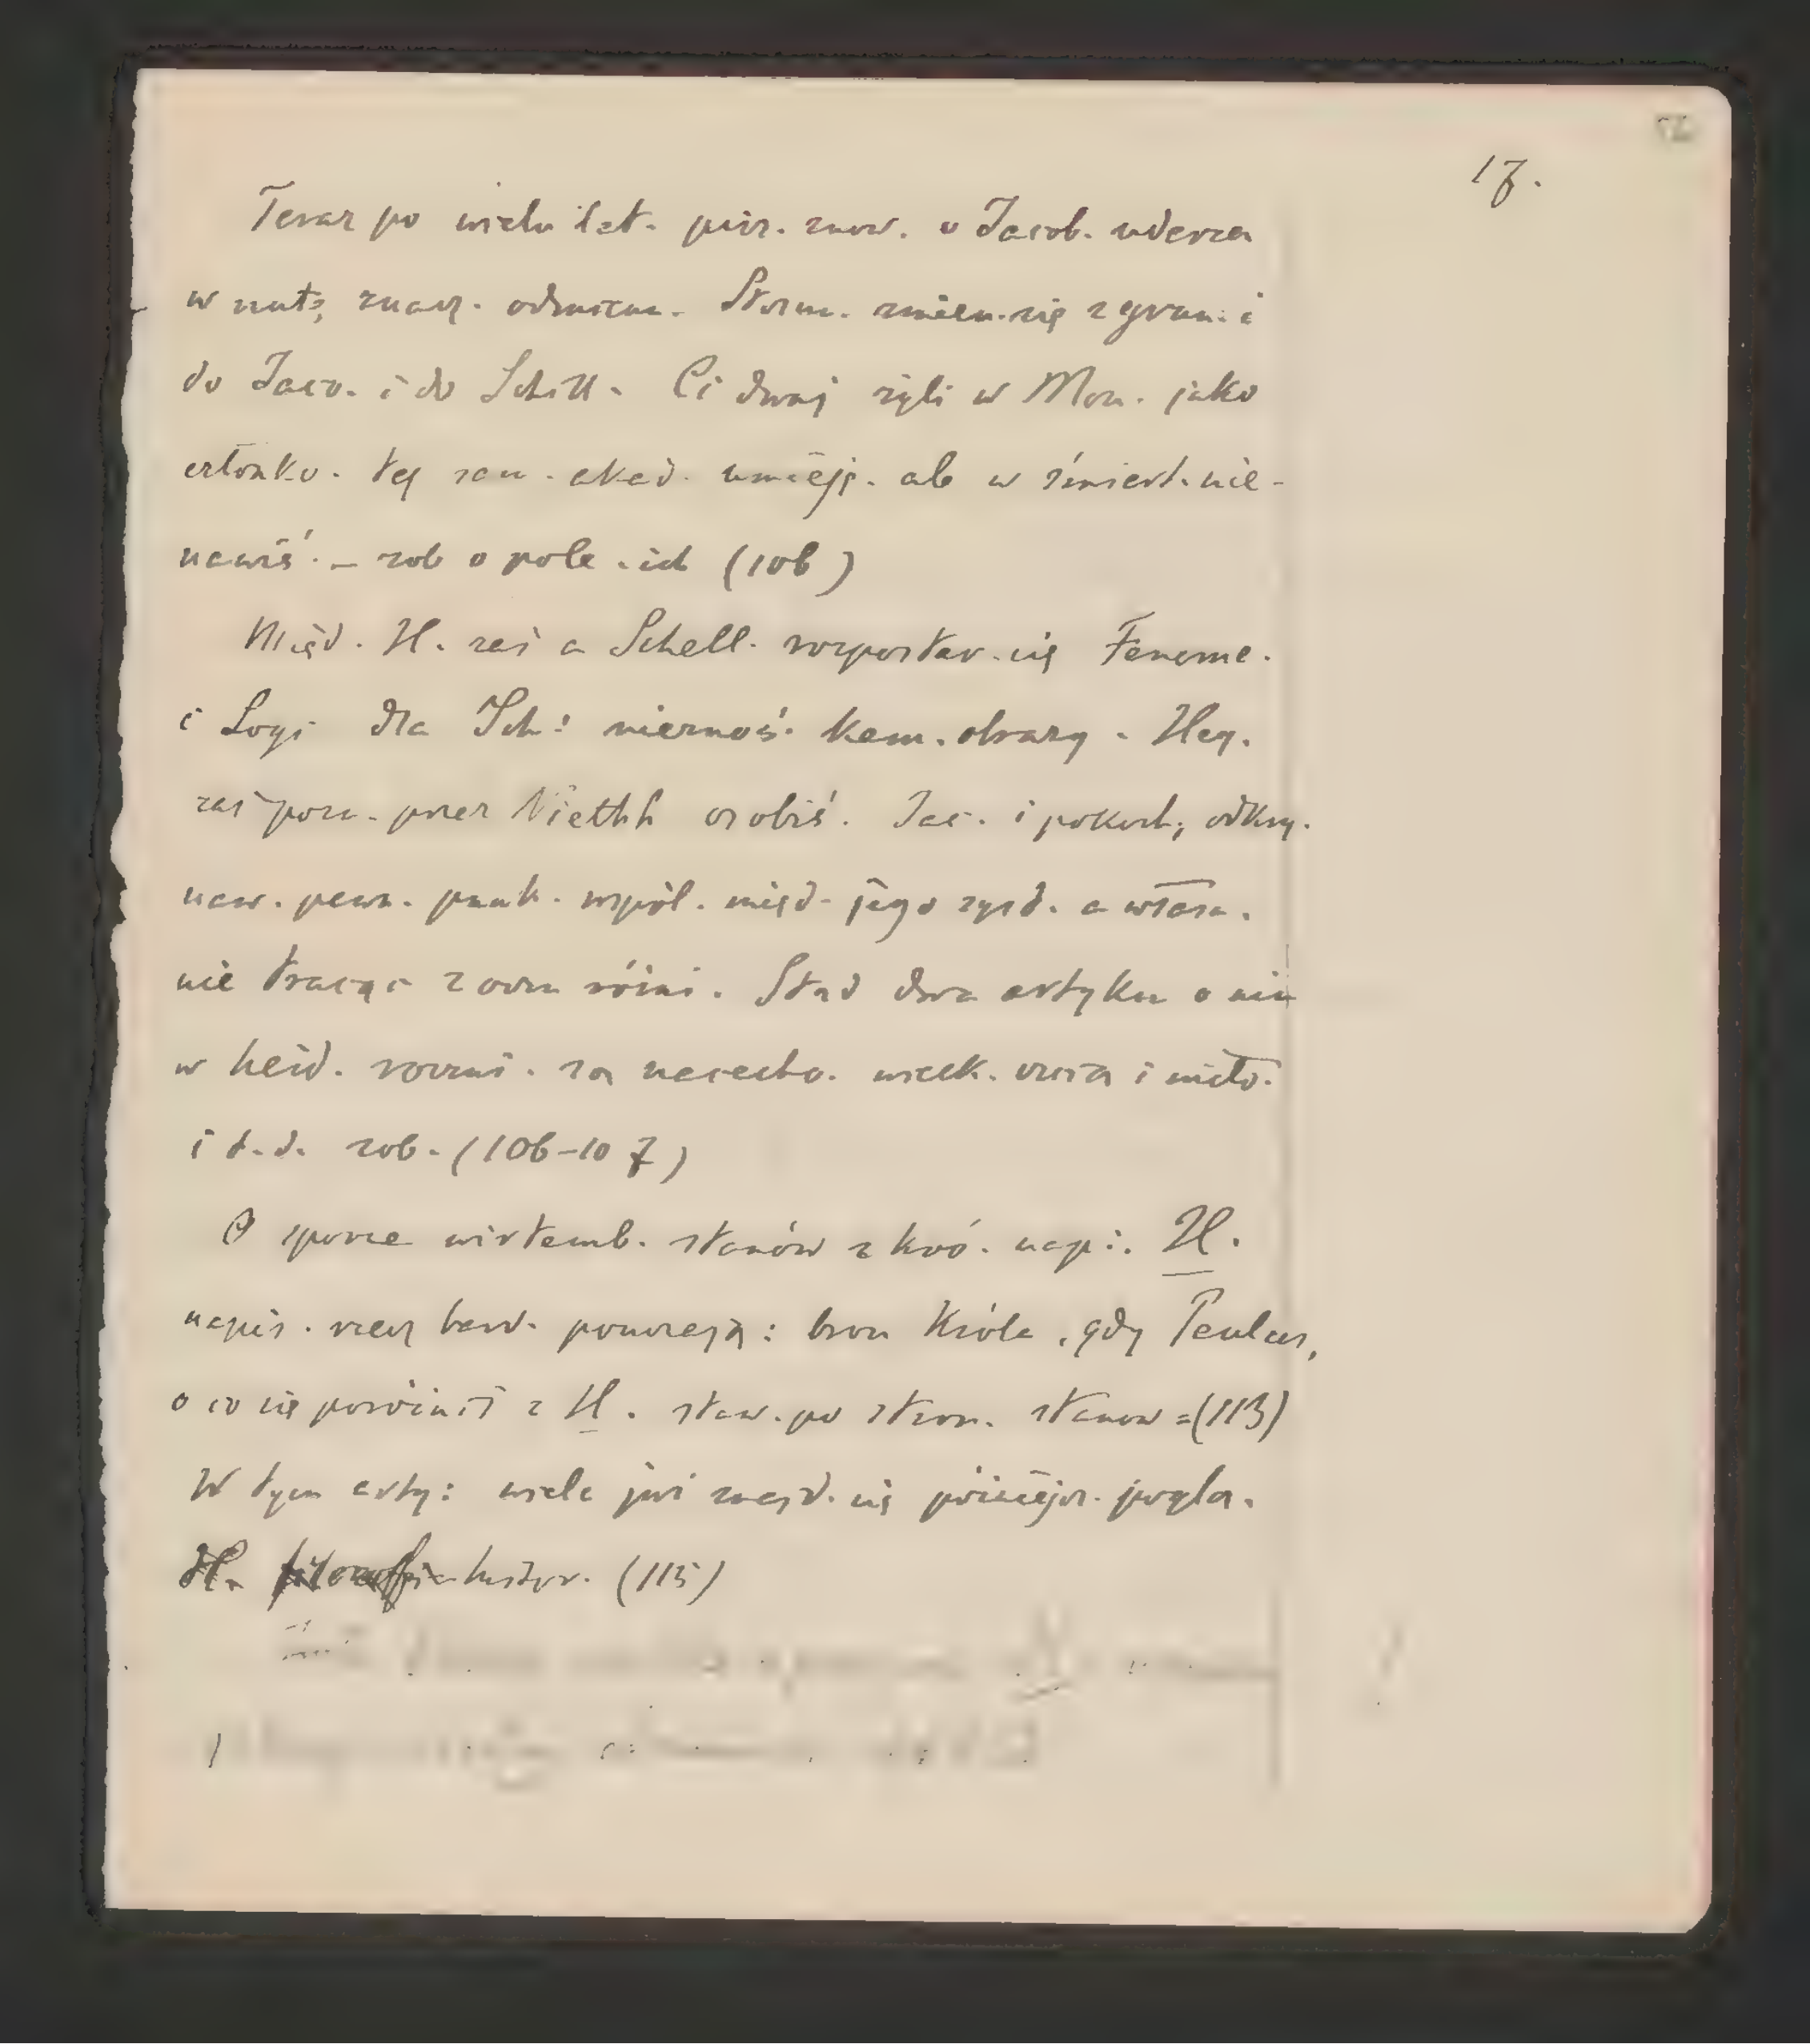 17.
Teraz po wielu lat. pisz. znow. o Jacob. uderza
w nutę znacz. odmien. Stosun. zmien. się zgrun. i
do Jaco. i do Schell. Ci dwaj żyli w Mon. jako
członko. tej sam. akad. umieję. ale w śmiert. nie-
nawiś. – zob o pole. ich (106)
Międ. H. zaś a Schell. rozpostar. się Fenome.
i Logi dla Sch: wiernoś. kam. obrazy. Heg.
zaś pozn. przez Niethh osobiś. Jac. i pokoch, odkry.
naw. pewn. punk. wspól. międ. jego syst. a włası.
nie tracąc z oczu różni. Stąd dwa artyku o nim
w heid. roczni. są nacecho. wielk. czcią i miło.
i t.d. zob. (106-107)
O sporze wirtemb. stanów z kró. napi. H.
napis. rzecz bard. poważną: bron Króla, gdy Paulus,
o co się poróżnił z H. staw. po stron. stanow. (113)
W tym arty: wiele już znajd. się późniejsz. poglą.
H. histor. (115)